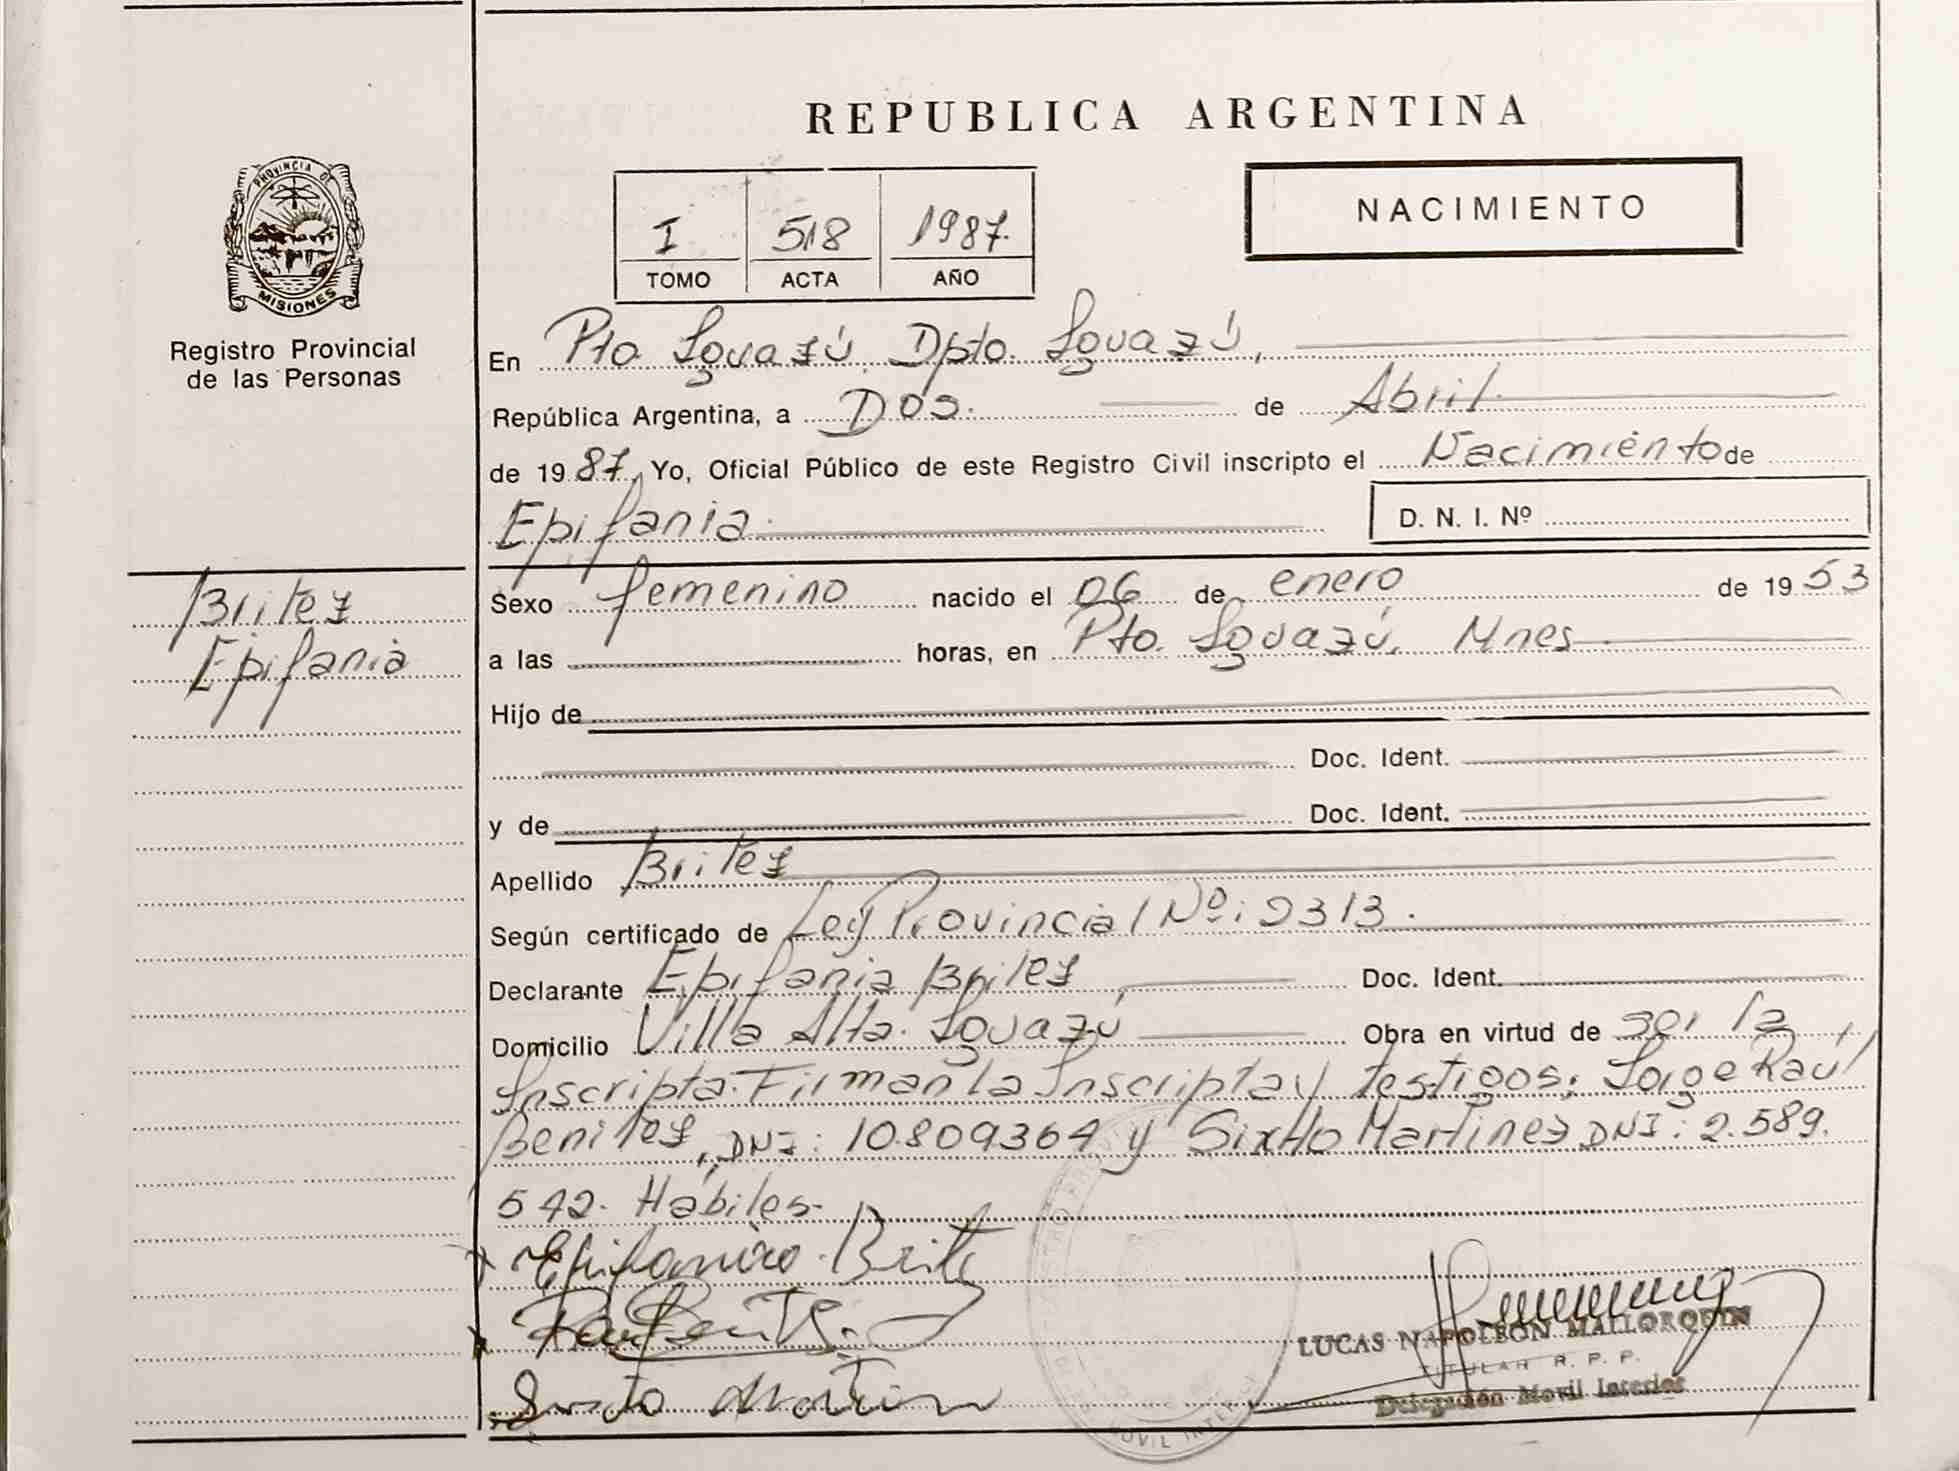 REPUBLICA ARGENTINA
PROVINCIA DE
MISIONES
Registro Provincial
de las Personas
I 518 1987.
TOMO ACTA AÑO
NACIMIENTO
En Pto. Iguazú, Dpto. Iguazú,
República Argentina, a Dos. de Abril.
de 1987, Yo, Oficial Público de este Registro Civil inscripto el Nacimiento de
Epifania.
D. N. I. Nº
Britez
Epifania
Sexo femenino nacido el 06 de enero de 1953
a las horas, en Pto. Iguazú, Mnes
Hijo de
Doc. Ident.
y de Doc. Ident.
Apellido Britez
Según certificado de Ley Provincial Nº: 2313.
Declarante Epifania Britez, Doc. Ident.
Domicilio Villa Alta. Iguazú Obra en virtud de ser la
Inscripta. Firman la Inscripta y testigos: Jorge Raúl
Benitez, DNI: 10.809364 y Sixto Martinez DNI: 2.589.
542. Hábiles.
Epifania Brite
LUCAS NAPOLEON MALLORQUIN
TITULAR R. P. P.
Delegación Movil Interior